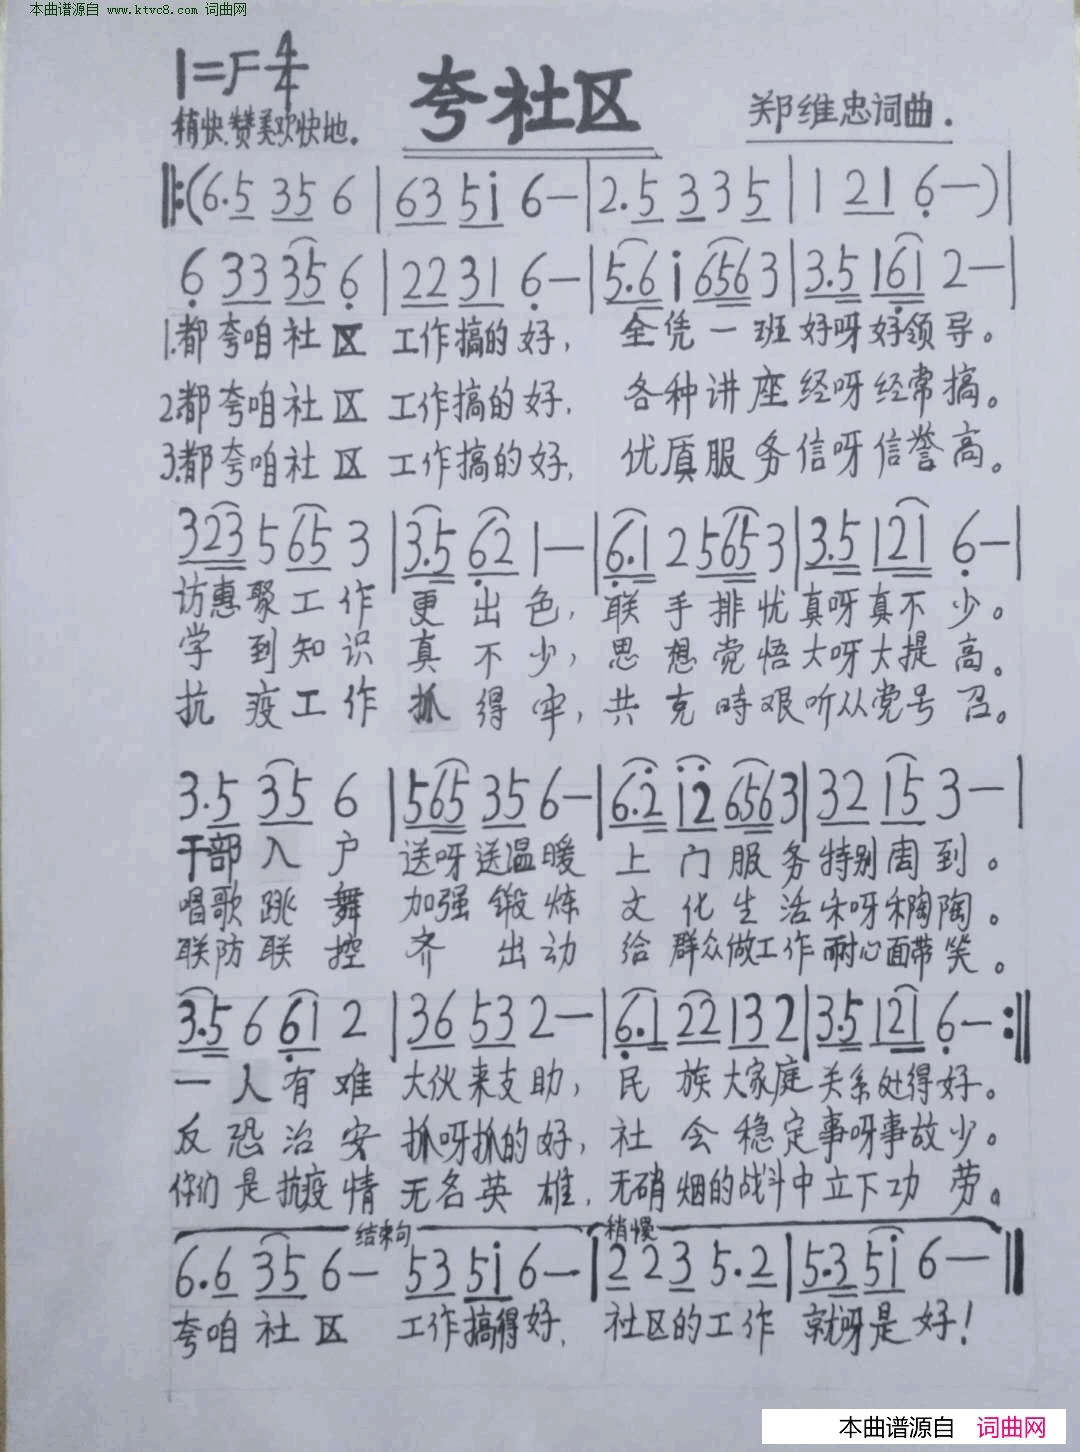 本曲谱源自 www.ktvc8.com 词曲网
1=F 4/4
夸社区
稍快.赞美欢快地。
郑维忠词曲.
‖:(6.5 35 6 | 63 5i 6— | 2.5 335 | 1 21 6—)|
6 33 35 6 | 22 31 6— | 5.6 i 656 3 | 3.5 161 2— |
1.都夸咱社区 工作搞的好, 全凭一班好呀好领导。
2.都夸咱社区 工作搞的好, 各种讲座经呀经常搞。
3.都夸咱社区 工作搞的好, 优质服务信呀信誉高。
323 5 65 3 | 3.5 62 1— | 6.1 2 565 3 | 3.5 121 6— |
访惠聚工作 更出色, 联手排忧真呀真不少。
学到知识 真不少, 思想党悟大呀大提高。
抗疫工作 抓得牢, 共克時艰听从党号召。
3.5 35 6 | 565 35 6— | 6.2 i2 656 3 | 32 15 3— |
干部入户 送呀送温暖 上门服务特别周到。
唱歌跳舞 加强锻炼 文化生活乐呀乐陶陶。
联防联控 齐出动 给群众做工作耐心面带笑。
3.5 6 61 2 | 36 53 2— | 6.1 22 13 2 | 3.5 121 6— :‖
一人有难 大伙来支助, 民族大家庭关系处得好。
反恐治安 抓呀抓的好, 社会稳定事呀事故少。
你们是抗疫情 无名英雄, 无硝烟的战斗中立下功劳。
结束句 稍慢
6.6 35 6— 53 5i 6— | 2 23 5.2 | 5.3 5i 6— ‖
夸咱社区 工作搞得好, 社区的工作 就呀是好!
本曲谱源自 词曲网